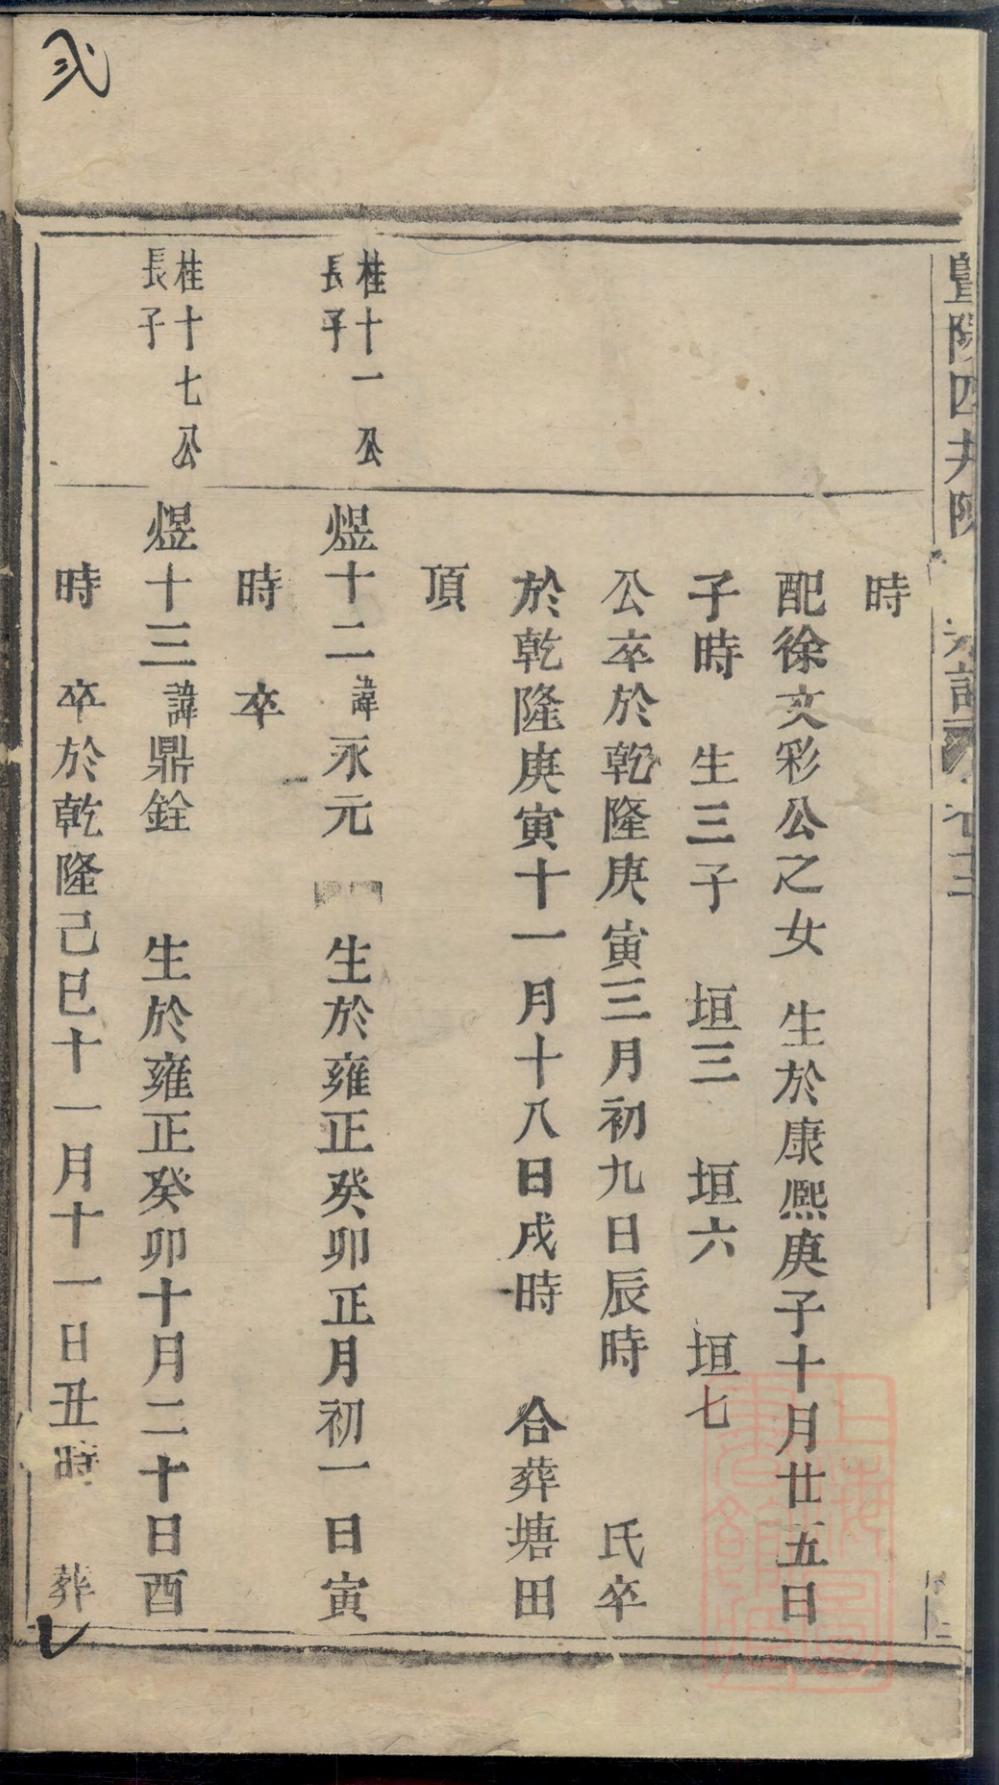 弍
暨陽四井陳 宗譜 卷三
時
配徐文彩公之女 生於康熙庚子十月廿五日
子時 生三子 垣三 垣六 垣七
公卒於乾隆庚寅三月初九日辰時 氏卒
於乾隆庚寅十一月十八日戌時 合葬塘田
頂
桂十一公
長子
煜十二諱永元 生於雍正癸卯正月初一日寅
時 卒
桂十七公
長子
煜十三諱鼎銓 生於雍正癸卯十月二十日酉
時 卒於乾隆己巳十一月十一日丑時 葬